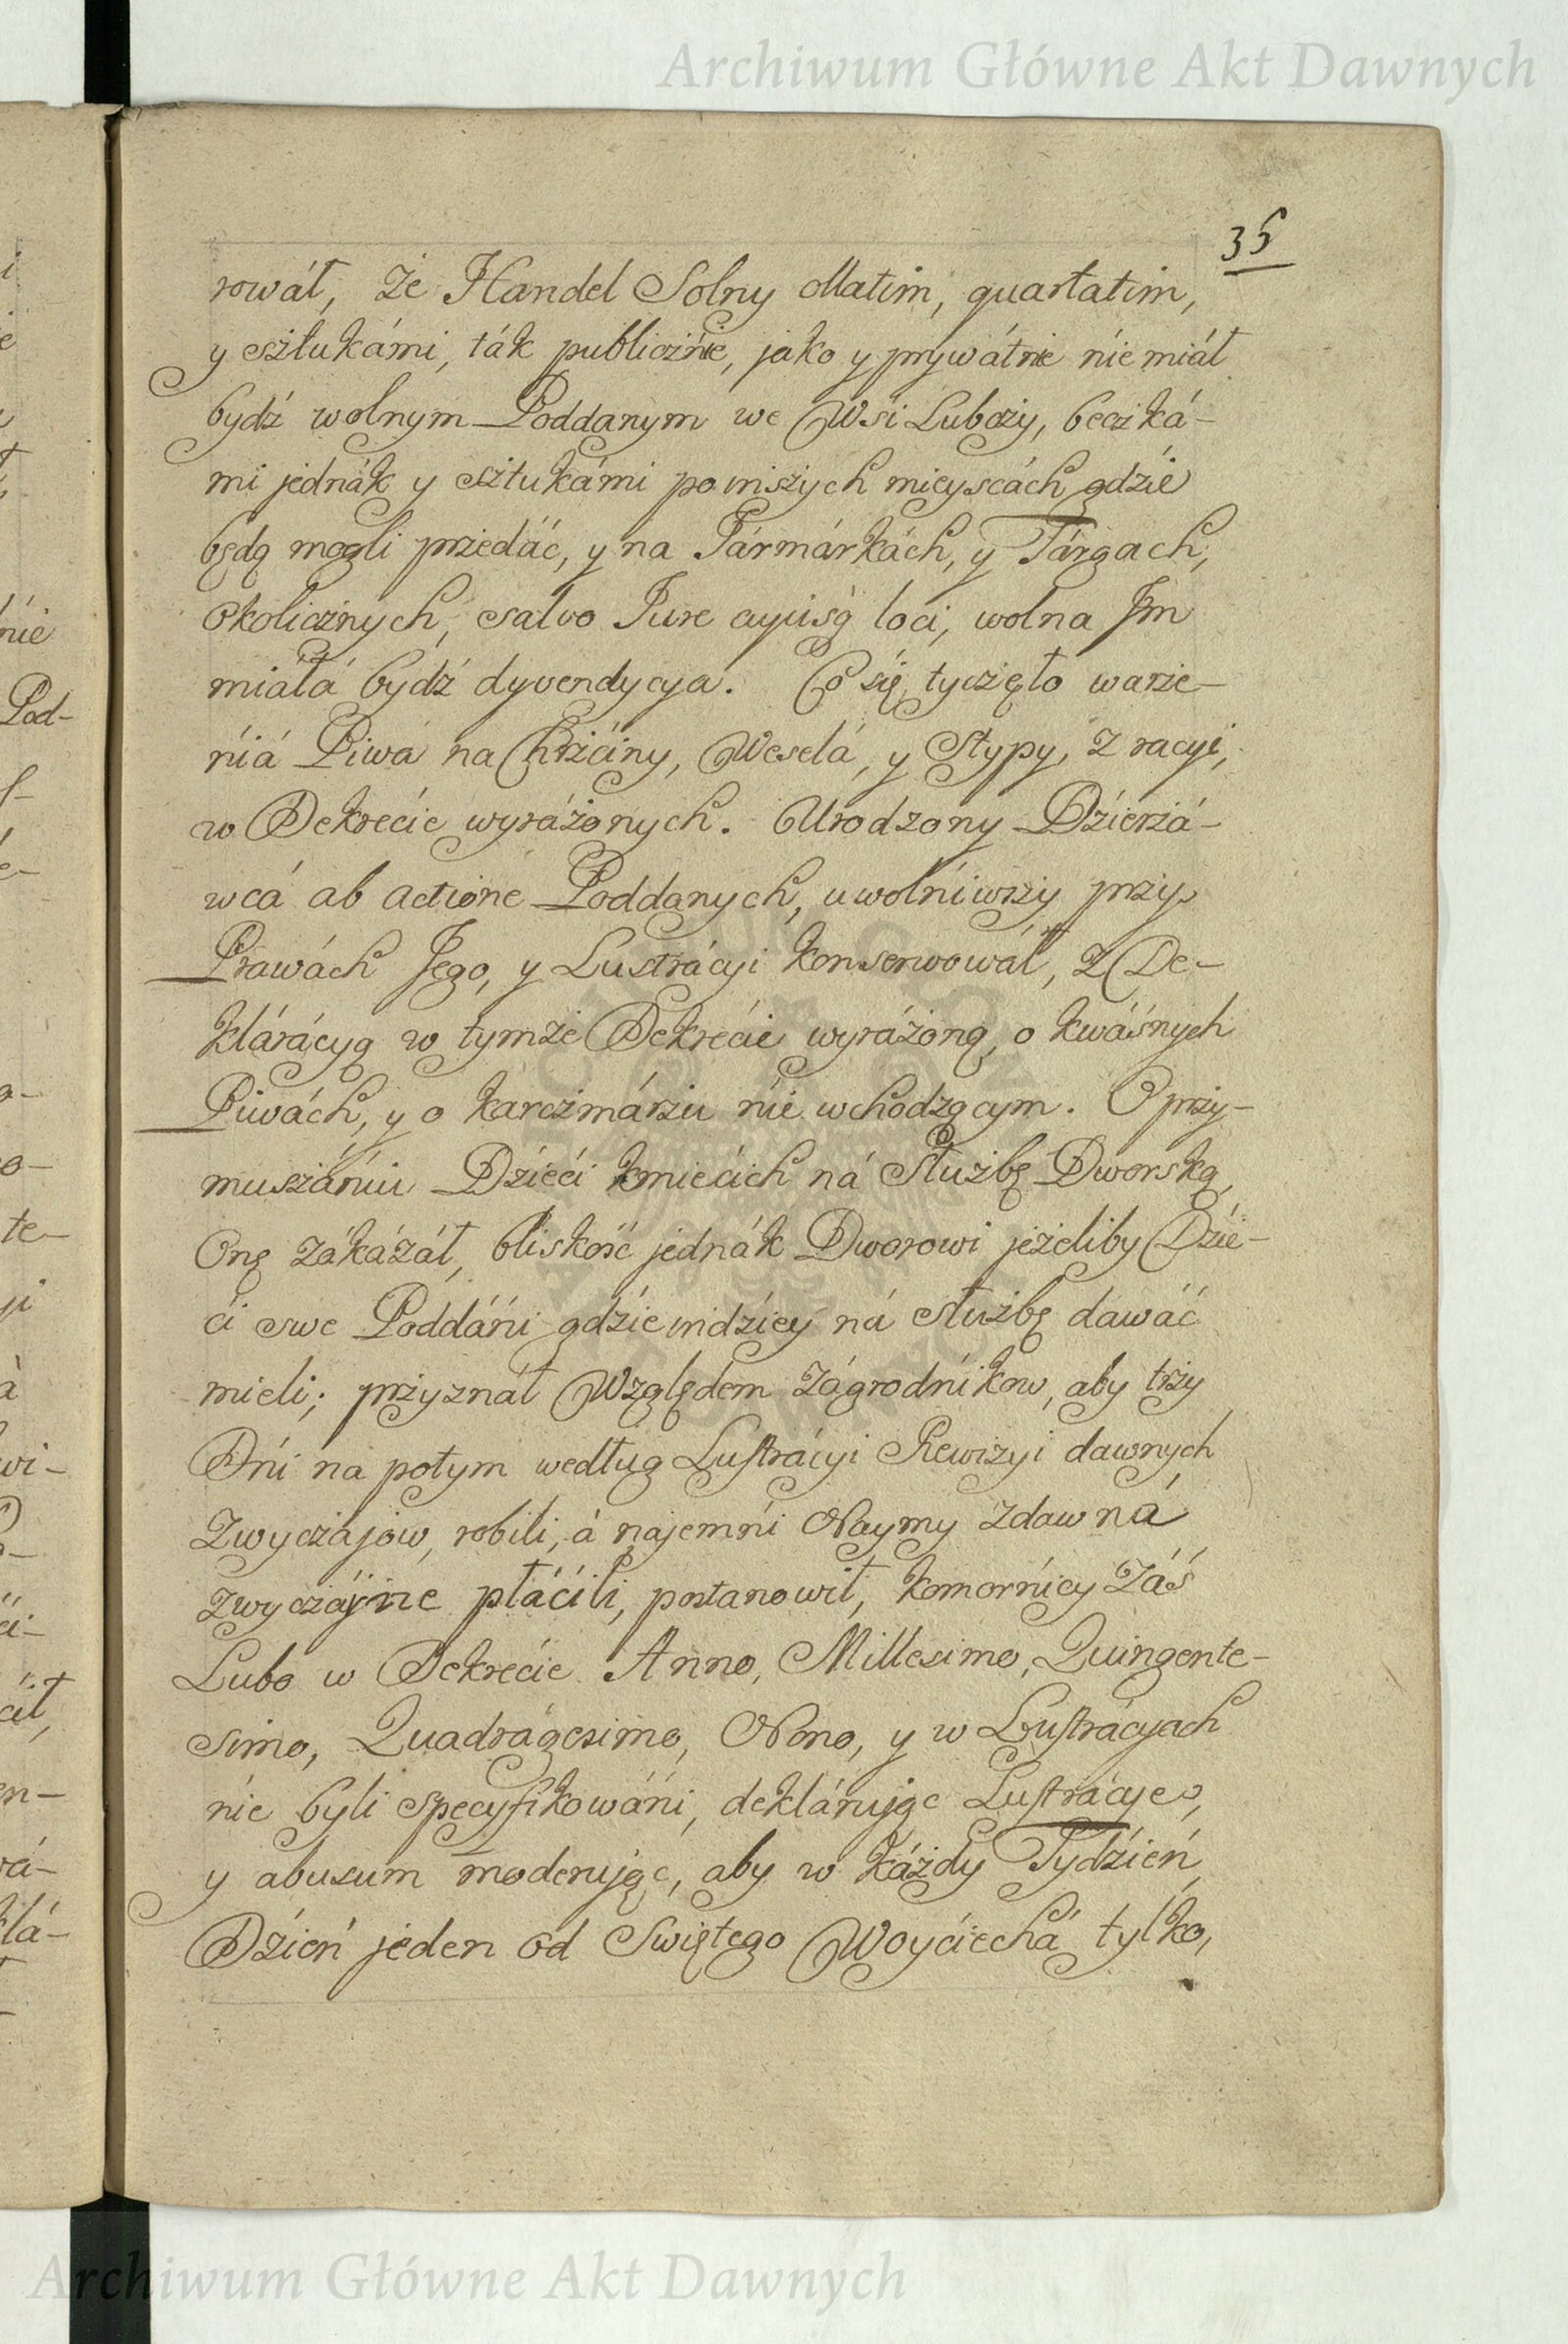 Archiwum Główne Akt Dawnych
35
rowáł, że Handel Solny ollatim, quartatim,
y sztukámi, ták publicznie, jáko y prywátnie nie miáł
bydź wolnym Poddanym we Wsi Lubczy, beczká-
mi jednák y sztukámi po inszych mieyscách gdzie
będą mogli przedáć, y na Jármárkách, y Tárgach,
okolicznych, salvo Jure cujusq loci, wolna Jm
miáłá bydź dyvendycya. Co się tyczęło warze-
niá Piwá na Chrzciny, Weselá, y Stypy, z racyi,
w Dekrecie wyráżonych. Urodzony Dzierżá-
wcá ab actione Poddanych, uwolniwszy przy
Prawách Jego, y Lustrácyi konserwował, z De-
klárácyą w tymże Dekrecie wyráżoną, o kwáśnych
Piwách, y o karczmárzu nie wchodzącym. O przy-
muszániu Dzieci kmiecich ná Służbę Dworską,
Onę zákázáł, bliskość jednák Dworowi jeżeliby Dzie-
ci swe Poddáni gdzieindziey ná Służbę dawáć
mieli; przyznáł Względem Zágrodników, aby trzy
Dni na potym według Lustrácyi Rewizyi dawnych
Zwyczájow, robili, á najemni Naymy zdawná
zwyczájne płácili, postanowił, komornicy Záś
Lubo w Dekrecie Anno, Millesimo, Quingente-
simo, Quadragesimo, Nono, y w Lustrácyach
nie byli specyfikowáni, deklárując Lustrácye,
y abusum moderując, aby w káżdy Tydzień,
Dzień jeden od Swiętego Woyciechá tylko,
Archiwum Główne Akt Dawnych